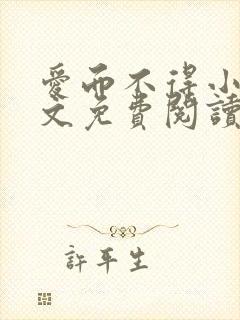 愛而不得小
文免費閱讀
許平生